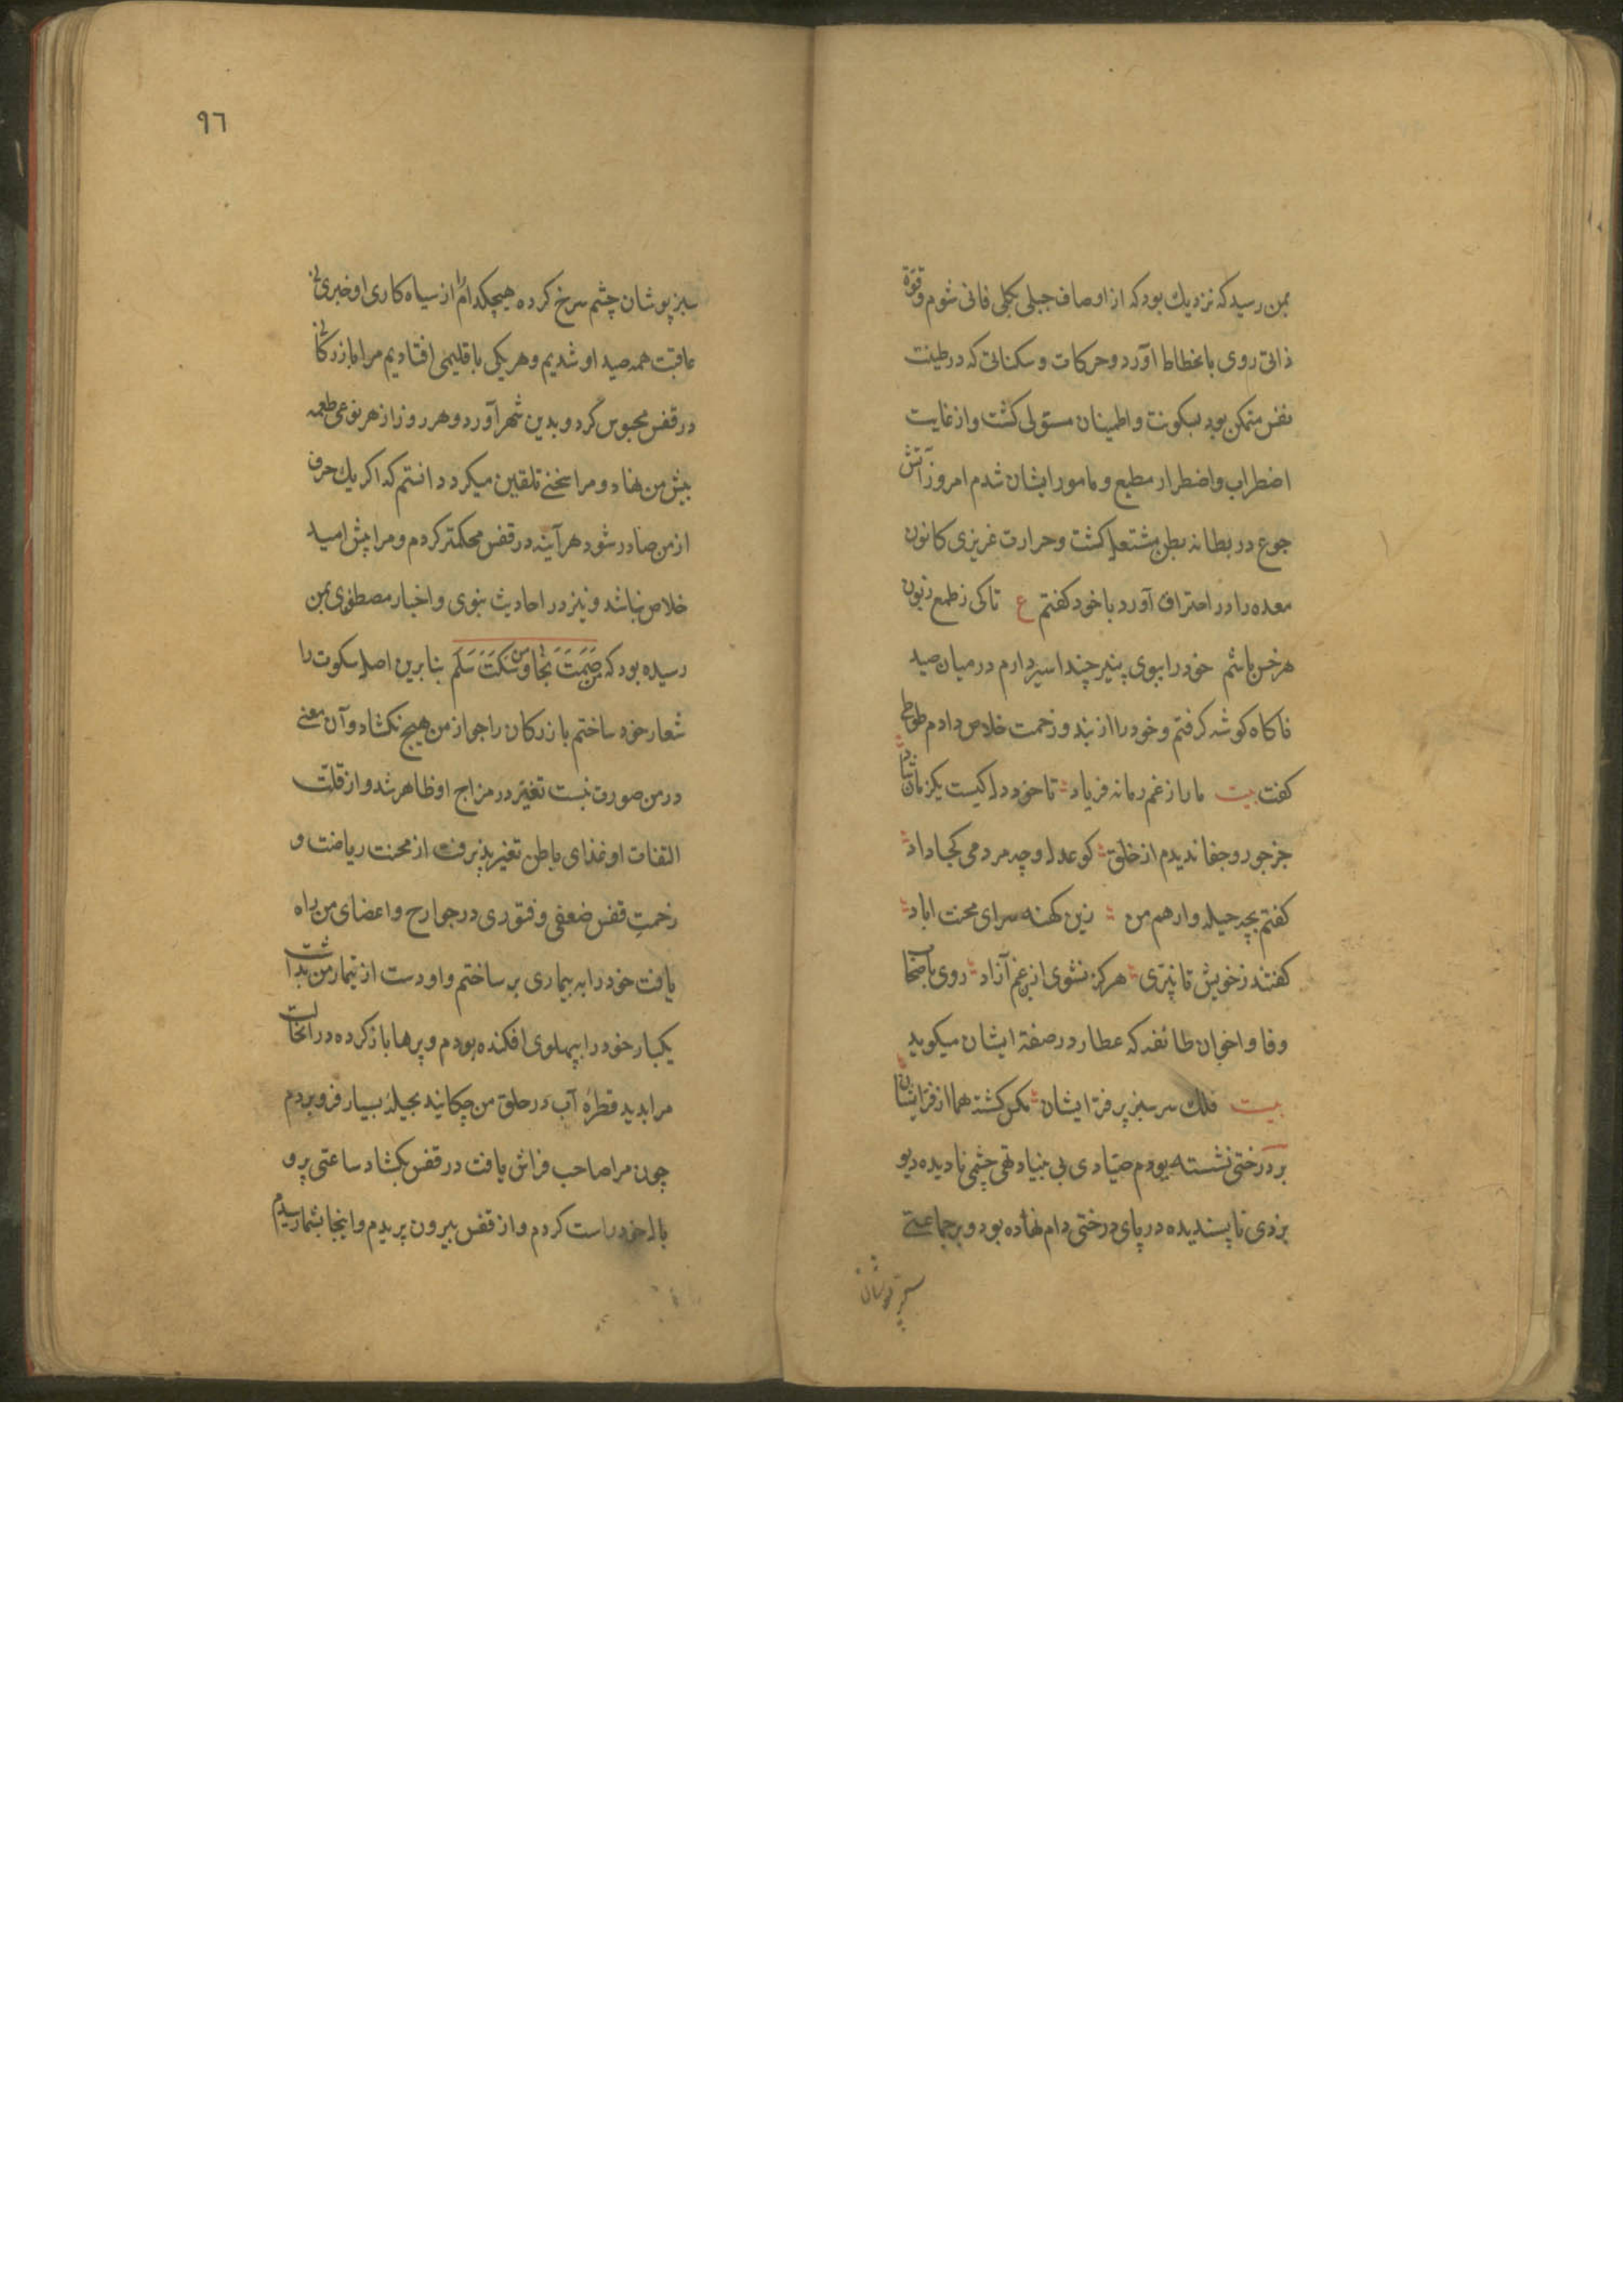 بمن رسید که نزدیك بود که از اوصاف جبلی بکلی فانی شوم و قوة
ذاتی روی بانحطاط آورد و حرکات و سکناتی که در طینت
نفس متمکن بود بسکونت و اطمینان مستولی کشت و از غایت
اضطراب و اضطرار مطیع و مامور ایشان شدم امروز آتش
جوع در بطانه بطن مشتعل کشت و حرارت غریزی کانون
معده را در احتراق آورد با خود کفتم ع تا کی ز طمع زبون
هر خس باشم خود را ببوی پنیر چند اسیر دارم در میان صید
ناکاه کوشه کرفتم و خود را از بند و زحمت خلاص دادم طوطی
کفت بیت ما را ز غم زمانه فریاد تا خود دل کیست یکزمان شاد
جز جور و جفا ندیدم از خلق کو عدل و چه مردمی کجا داد
کفتم بچه حیله وارهم من زین کهنه سرای محنت اباد
کفتند ز خویش تا نبری هرکز نشوی ازین غم آزاد روزی با اصحاب
وفا و اخوان طائفه که عطار در صفة ایشان میکوید
بیت فلك سرسبز پر فرّ ایشان مکس کشته هما از فرّ ایشان
بر درختی نشسته بودم صیّادی بی بنیاد تهی چشمی نادیده دیو
بزدی ناپسندیده در پای درختی دام نهاده بود و بر جماعتی
سبز پوشان
٩٦
سبز پوشان چشم سرخ کرده هیچکدام را از سیاه کاری او خبری نی
عاقبت همه صید او شدیم و هر یکی باقلیمی افتادیم مرا بازرکانی
در قفس محبوس کرد و بدین شهر آورد و هر روز از هر نوعی طعمه
پیش من نهاد و مرا سخنی تلقین میکرد دانستم که اکر یك حرف
از من صادر شود هرآینه در قفس محکمتر کردم و مرا پیش امید
خلاص نباشد و نیز در احادیث نبوی و اخبار مصطفوی بمن
رسیده بود که مَن صَمَتَ نَجَا و من سَکَتَ سَلَم بنابرین اصل سکوت را
شعار خود ساختم بازرکان را جو از من هیچ نکشاد و آن معنی
در من صورت نبست تغیّر در مزاج او ظاهر شد و از قلت
التفات او غذای باطن تغیر پذیرفت از محنت ریاضت و
زحمتِ قفس ضعفی و فتوری در جوارح و اعضای من راه
یافت خود را به بیماری بر ساختم و او دست از تیمار من بداشت
یکبار خود را بپهلوی افکنده بودم و پرها باز کرده در آنحالت
مرا بدید قطرهٔ آب در حلق من چکانید بحیلهٔ بسیار فرو بردم
چون مرا صاحب فراش یافت در قفس بکشاد ساعتی پر و
بال خود راست کردم و از قفس بیرون پریدم و اینجا بشما رسیدم